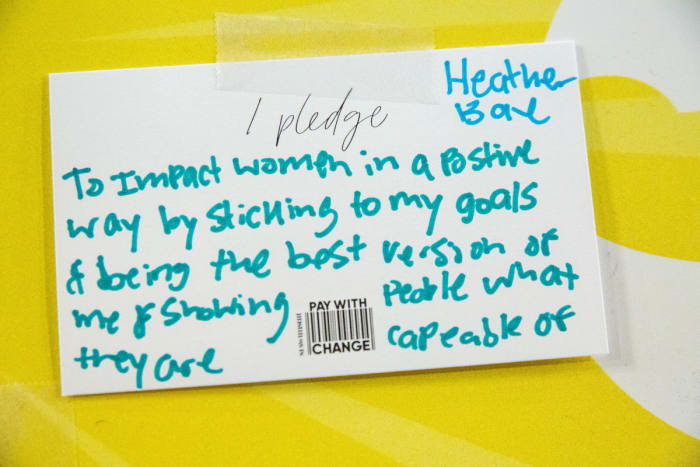 Heather
Bove
I pledge
To Impact women in a Postive
way by sticking to my goals
& being the best version of
me & showing people what
they are capeable of
PAY WITH
CHANGE